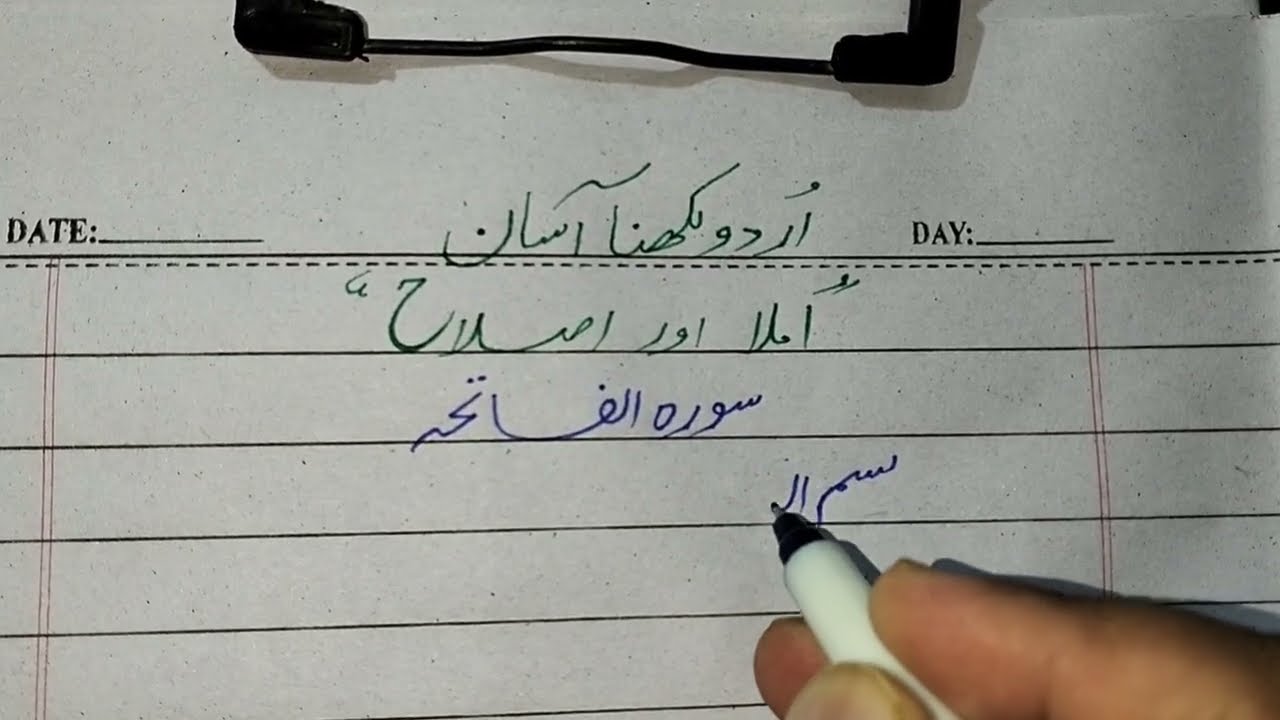 DATE: DAY:
اُردو لکھنا آسان
"اُملا اور اصلاح"
سورہ الفاتحہ
سم الـ